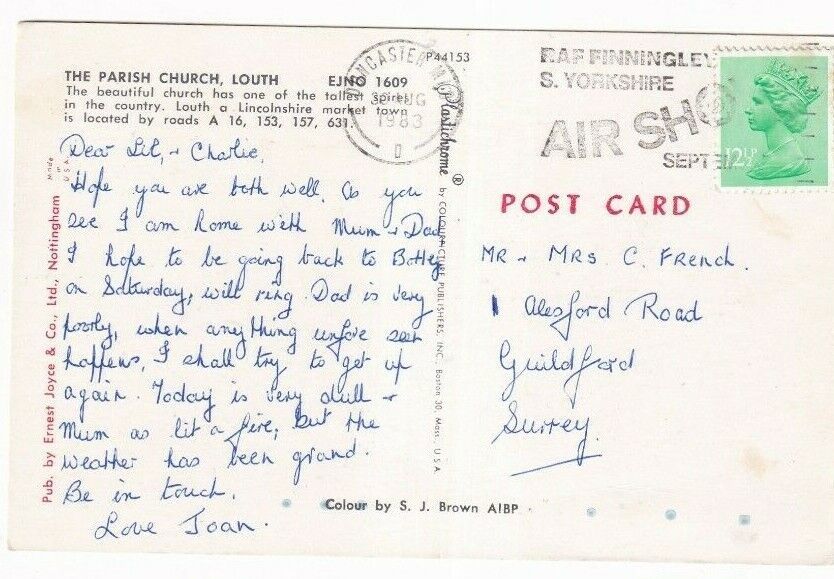 P44153
THE PARISH CHURCH, LOUTH EJNO 1609
The beautiful church has one of the tallest spires
in the country. Louth a Lincolnshire market town
is located by roads A 16, 153, 157, 631.
DONCASTER
AUG
1983
RAF FINNINGLEY
S. YORKSHIRE
AIR SHOW
SEPT
12½P
Dear Lil, + Charlie,
Hope you are both well. As you
see I am home with Mum + Dad
I hope to be going back to Botley
on Saturday, will ring. Dad is very
poorly, when anything unfore seen
happens, I shall try to get up
again. Today is very dull +
Mum as lit a fire, but the
weather has been grand.
Be in touch.
Love Joan.
Made in U.S.A.
Pub. by Ernest Joyce & Co., Ltd., Nottingham
Plastichrome ® by COLOURPICTURE PUBLISHERS, INC., Boston 30, Mass. U.S.A.
POST CARD
MR + MRS C. French.
1 Alesford Road
Guildford
Surrey.
Colour by S. J. Brown AIBP